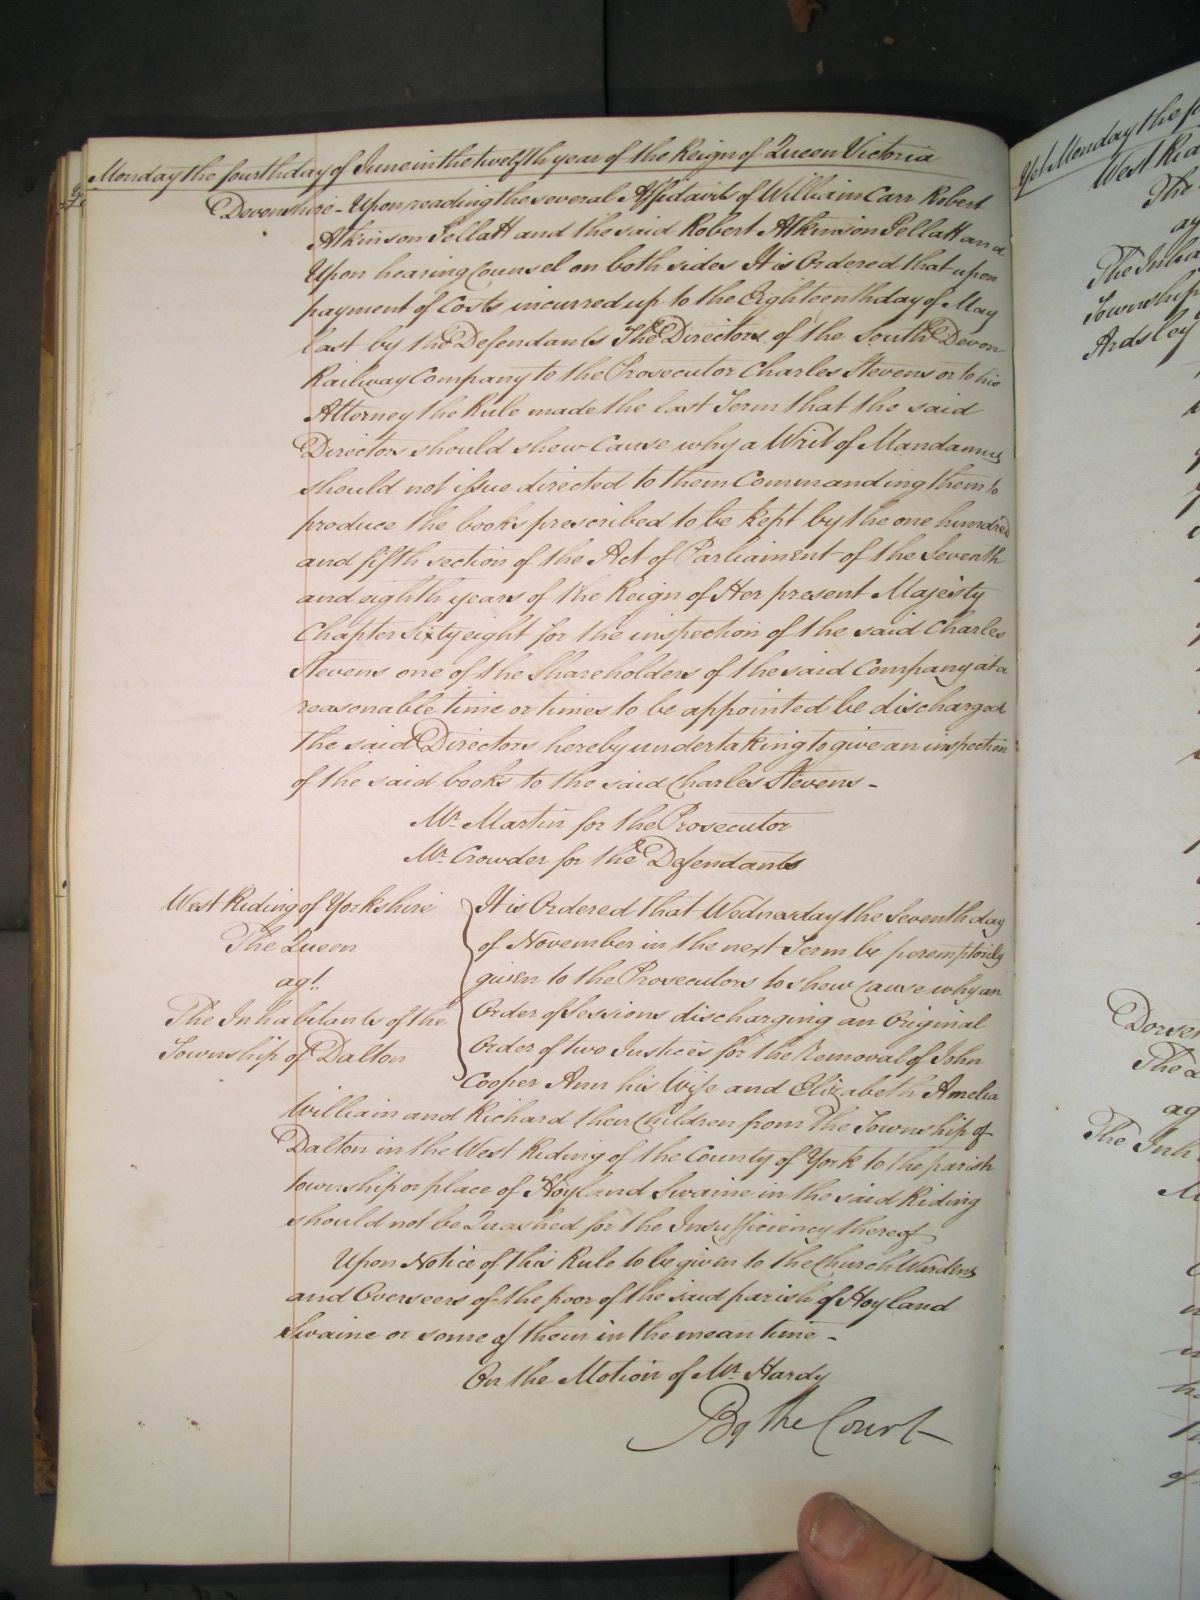 Monday the fourth day of June in the twelfth year of the Reign of Queen Victoria
Devonshire - Upon reading the several Affidavits of William Carr Robert
Atkinson Pellatt and the said Robert Atkinson Pellatt and
Upon hearing Counsel on both sides It is Ordered that upon
payment of Costs incurred up to the Eighteenth day of May
last by the Defendants The Directors of the South Devon
Railway Company to the Prosecutor Charles Stevens or to his
Attorney the Rule made the last Term that the said
Directors should shew Cause why a Writ of Mandamus
should not issue directed to them Commanding them to
produce the books prescribed to be kept by the one hundred
and fifth section of the Act of Parliament of the Seventh
and eighth years of the Reign of Her present Majesty
Chapter Sixty eight for the inspection of the said Charles
Stevens one of the Shareholders of the said Company at a
reasonable time or times to be appointed be discharged
the said Directors hereby undertaking to give an inspection
of the said books to the said Charles Stevens -
Mr. Martin for the Prosecutor
Mr. Crowder for the Defendants
West Riding of Yorkshire
The Queen
agt.
The Inhabitants of the
Township of Dalton
It is Ordered that Wednesday the Seventh day
of November in the next Term be peremptorily
given to the Prosecutors to shew cause why an
Order of Sessions discharging an Original
Order of two Justices for the Removal of John
Cooper Ann his Wife and Elizabeth Amelia
William and Richard their Children from the Township of
Dalton in the West Riding of the County of York to the parish
township or place of Hoyland Swaine in the said Riding
should not be Quashed for the Insufficiency thereof
Upon Notice of this Rule to be given to the Church Wardens
and Overseers of the poor of the said parish of Hoyland
Swaine or some of them in the mean time -
On the Motion of Mr. Hardy
By the Court
Yet Monday the
West Rid
The
ag
The Inha
Township
Ardsley
Dorse
The
ag
The Inh